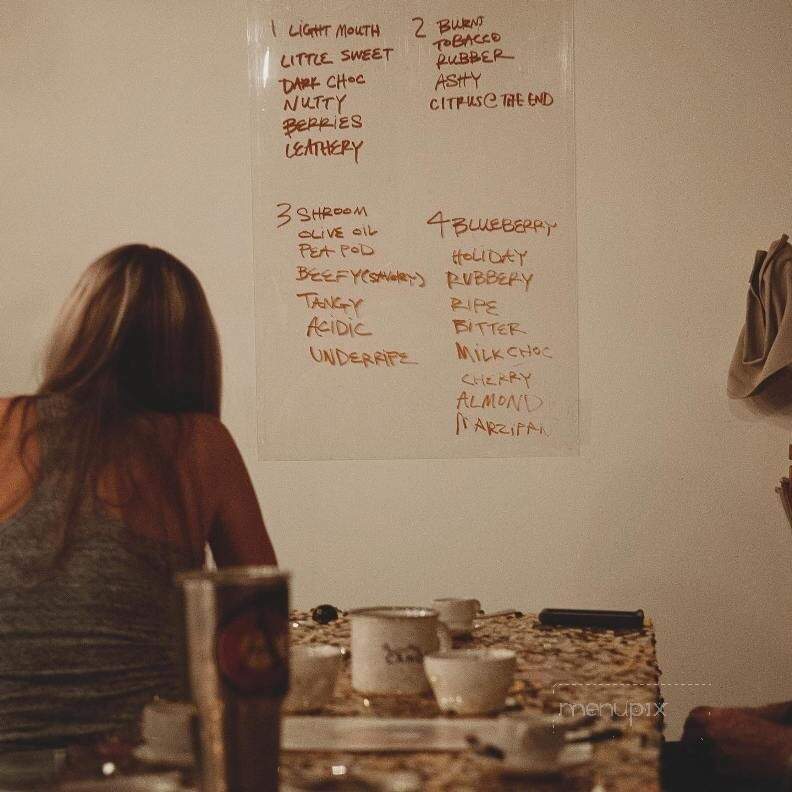 1 LIGHT MOUTH
LITTLE SWEET
DARK CHOC
NUTTY
BERRIES
LEATHERY
2 BURNT
TOBACCO
RUBBER
ASHY
CITRUS@THE END
3 SHROOM
OLIVE OIL
PEA POD
BEEFY(SAVORY)
TANGY
ACIDIC
UNDERRIPE
4 BLUEBERRY
HOLIDAY
RUBBERY
RIPE
BITTER
MILK CHOC
CHERRY
ALMOND
MARZIPAN
menupix